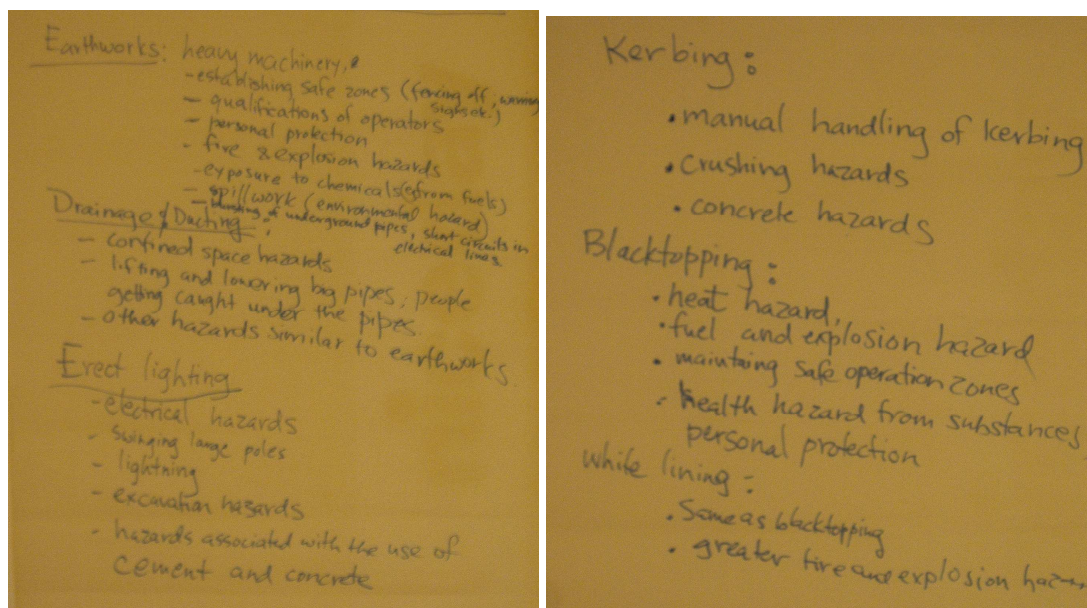 Earthworks: heavy machinery,
- establishing safe zones (fencing off, warning
signs etc.)
- qualifications of operators
- personal protection
- fire & explosion hazards
- exposure to chemicals (from fuels)
- spill work (environmental hazard)
- bursting of underground pipes, short circuits in
electrical lines
Drainage & Ducting:
- confined space hazards
- lifting and lowering big pipes; people
getting caught under the pipes.
- other hazards similar to earthworks.
Erect lighting
- electrical hazards
- swinging large poles
- lightning
- excavation hazards
- hazards associated with the use of
cement and concrete
Kerbing:
• manual handling of kerbing
• crushing hazards
• concrete hazards
Blacktopping:
• heat hazard,
• fuel and explosion hazard
• maintaing safe operation zones
• health hazard from substances,
personal protection
white lining:
• Same as blacktopping
• greater fire and explosion